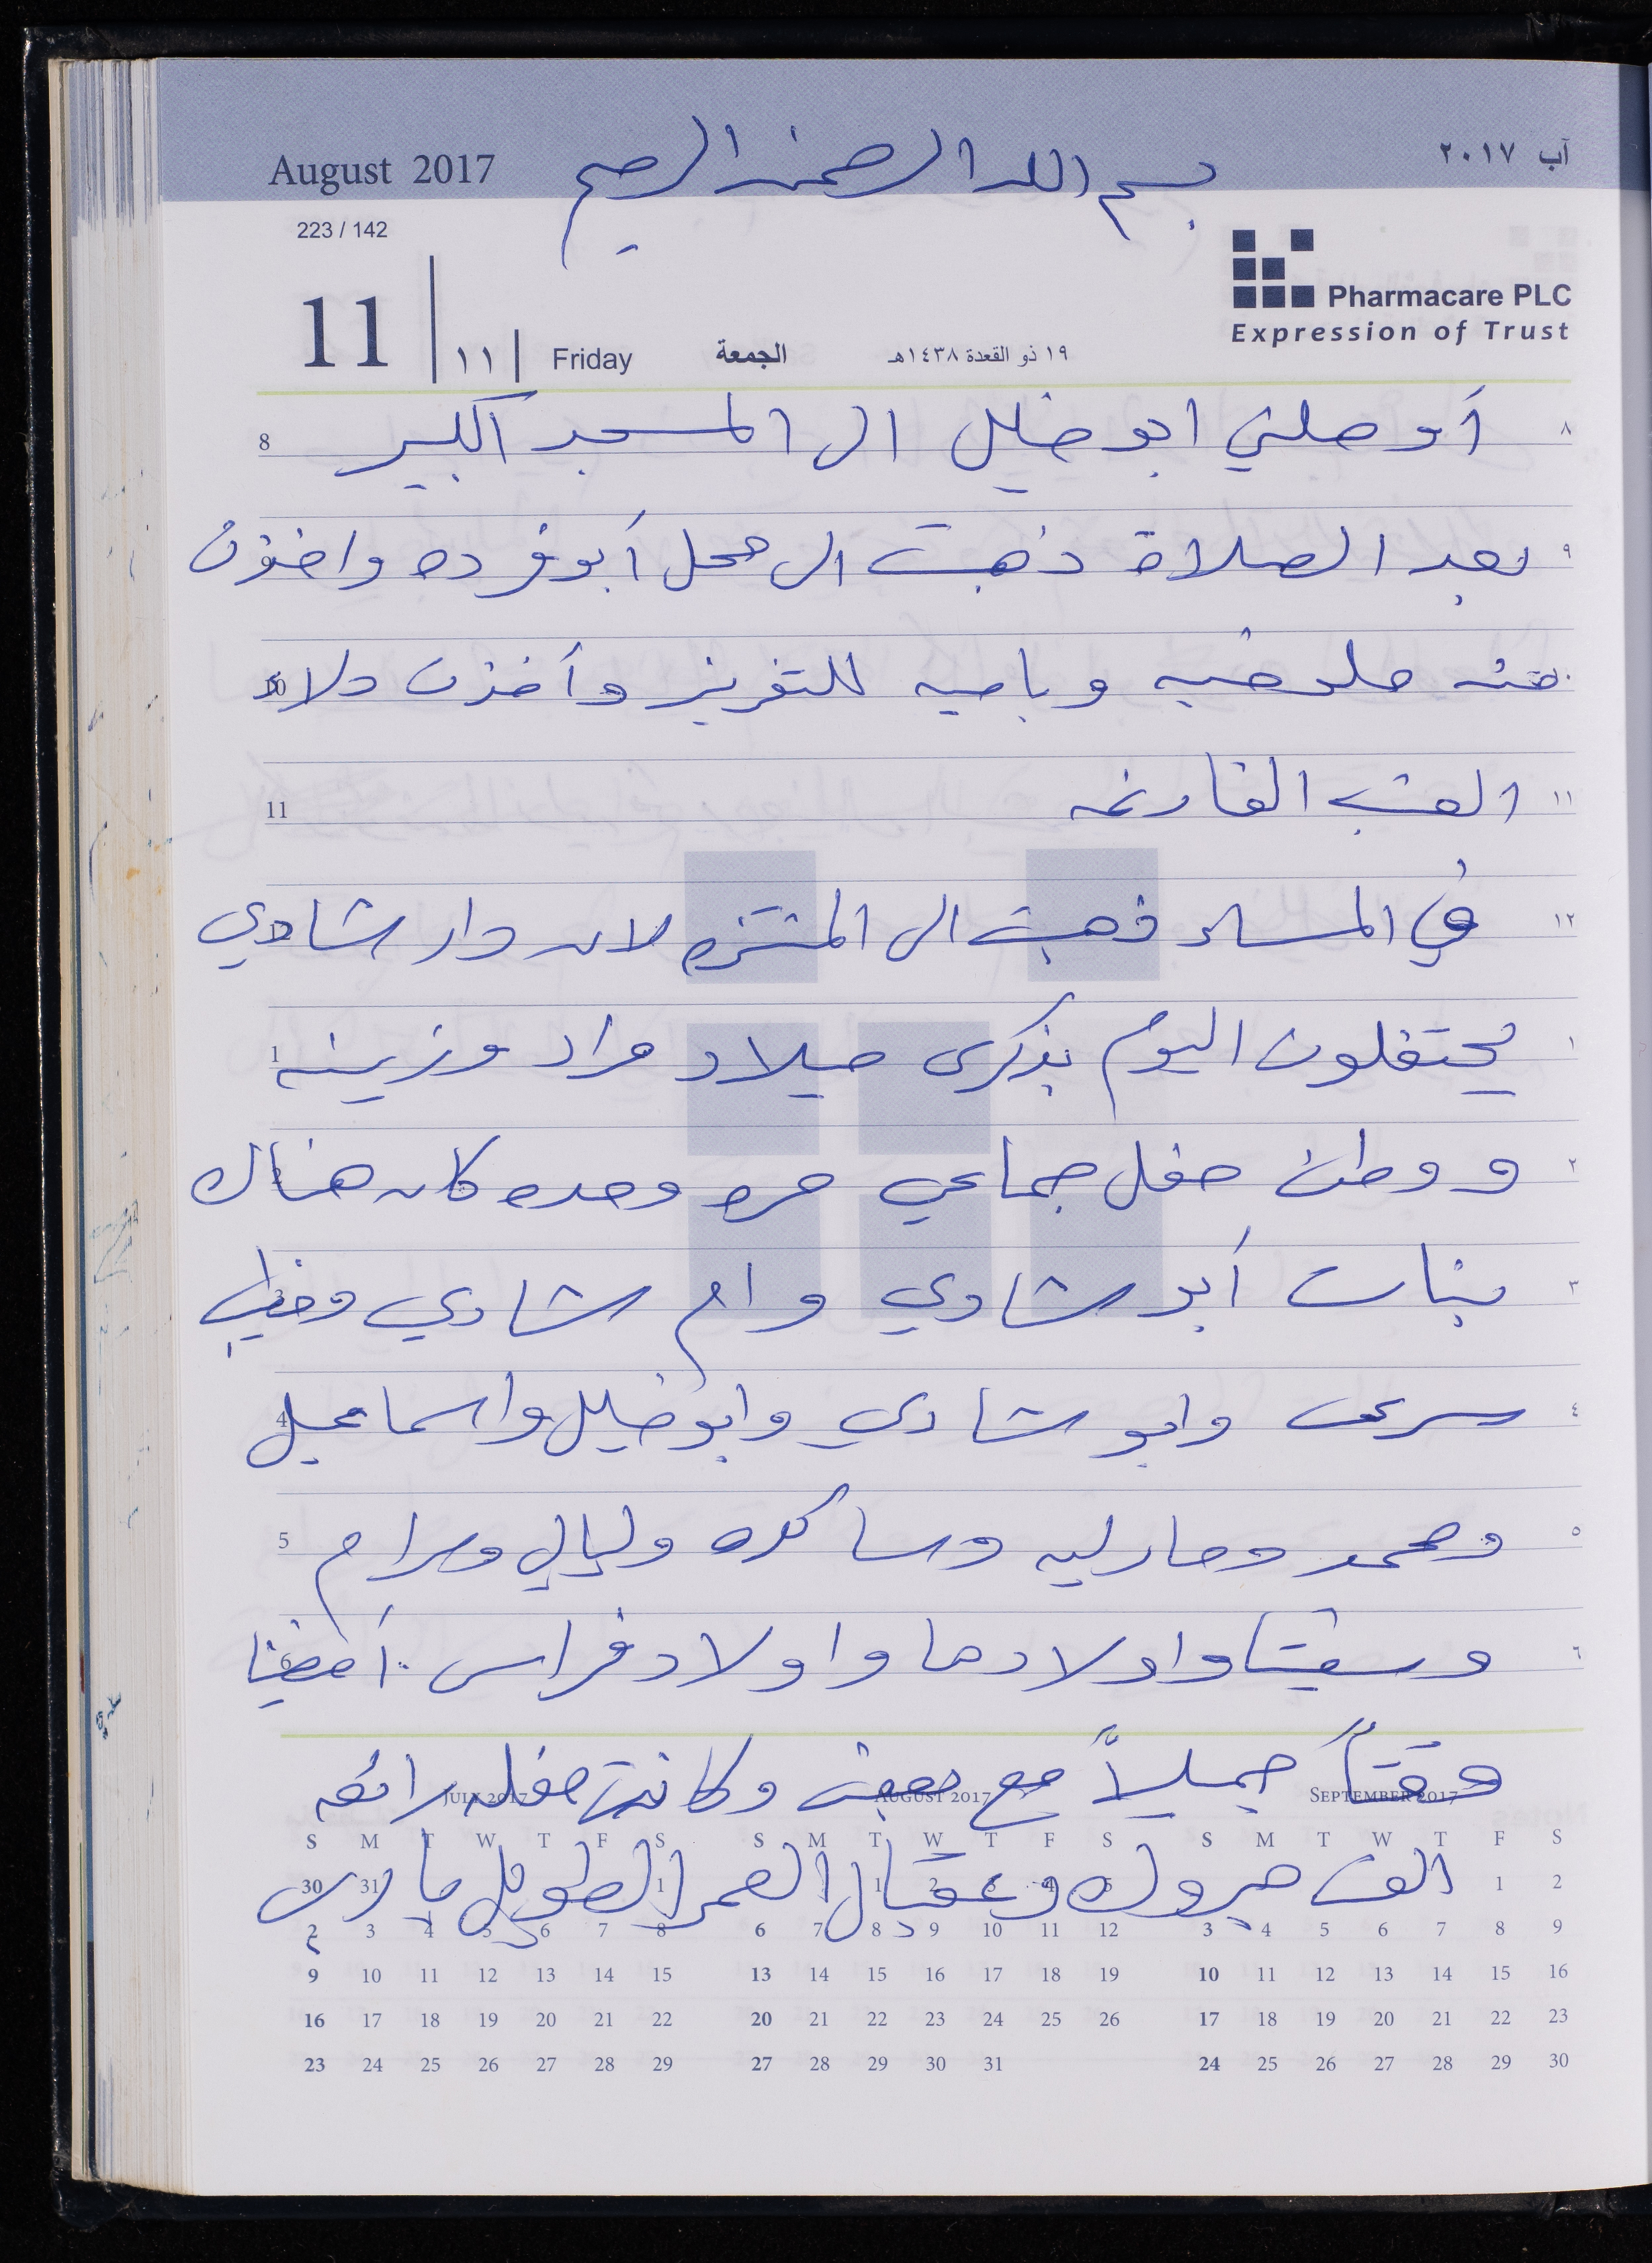 August 2017
بسم الله الرحمن الرحيم
آب ٢٠١٧
223 / 142
Pharmacare PLC
Expression of Trust
11 | ١١ | Friday الجمعة ١٩ ذو القعدة ١٤٣٨هـ
٨ أوصلني ابو خليل الى المسجد الكبير 8
٩ بعد الصلاة ذهبت الى محل أبو فرده واخذت
منه ملوخيه وباميه للتفريز وأخذت 10
١١ العنب الفارغه 11
١٢ في المساء ذهبت الى المنتزه لان دار شادي
١ يحتفلون اليوم بذكرى ميلاد مراد وزينه 1
٢ ووطن حفل جماعي مره وحده كان هناك
٣ بنات أبو شادي وام شادي وخطيب 3
٤ وابو شادي وابو خليل واسماعيل 4
٥ ومحمد وماريه وساكره وليالي ومرام 5
٦ واولادها واولاد فراس . أمضينا 6
وقتاً جميلاً مع بعض وكانت حفله رائعه
الف مبروك وعقبال العمر الطويل يا رب
JULY 2017 AUGUST 2017 SEPTEMBER 2017
S M T W T F S S M T W T F S S M T W T F S
30 31 1 1 2 3 4 5 1 2
2 3 4 5 6 7 8 6 7 8 9 10 11 12 3 4 5 6 7 8 9
9 10 11 12 13 14 15 13 14 15 16 17 18 19 10 11 12 13 14 15 16
16 17 18 19 20 21 22 20 21 22 23 24 25 26 17 18 19 20 21 22 23
23 24 25 26 27 28 29 27 28 29 30 31 24 25 26 27 28 29 30